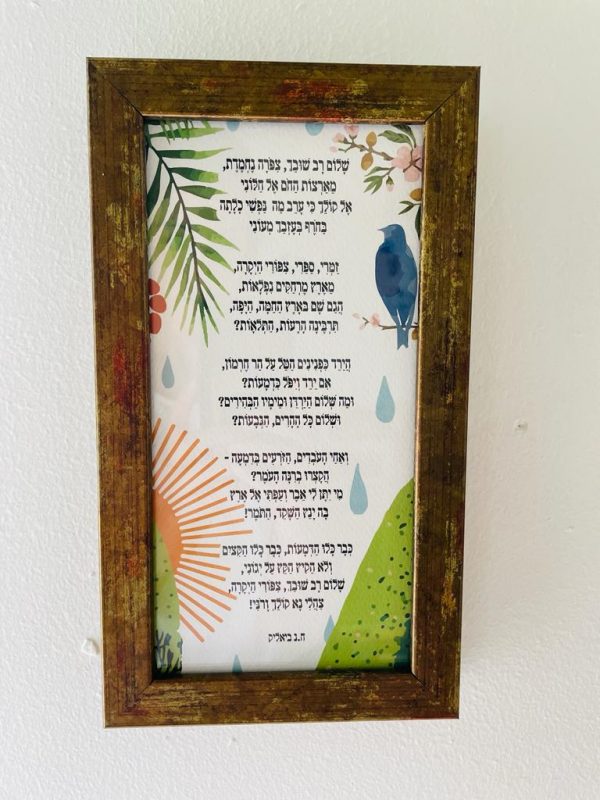 שָׁלוֹם רָב שׁוּבֵךְ, צִפֹּרָה נֶחְמֶדֶת,
מֵאַרְצוֹת הַחֹם אֶל חַלּוֹנִי
אֶל קוֹלֵךְ כִּי עָרֵב מַה נַּפְשִׁי כָלָתָה
בַּחֹרֶף בְּעָזְבֵךְ מְעוֹנִי
זַמְּרִי, סַפְּרִי, צִפּוֹרִי הַיְקָרָה,
מֵאֶרֶץ מֶרְחַקִּים נִפְלָאוֹת,
הֲגַם שָׁם בָּאָרֶץ הַחַמָּה, הַיָּפָה,
תִּרְבֶּינָה הָרָעוֹת, הַתְּלָאוֹת?
הֲיֵרֵד כִּפְנִינִים הַטַּל עַל הַר חֶרְמוֹן,
אִם יֵרֵד וְיִפֹּל כִּדְמָעוֹת?
וּמַה שְּׁלוֹם הַיַּרְדֵּן וּמֵימָיו הַבְּהִירִים?
וּשְׁלוֹם כָּל הֶהָרִים, הַגְּבָעוֹת?
וְאַחַי הָעֹבְדִים, הַזֹּרְעִים בְּדִמְעָה -
הֲקָצְרוּ בְרִנָּה הָעֹמֶר?
מִי יִתֶּן לִי אֵבֶר וְעַפְתִּי אֶל אֶרֶץ
בָּהּ יָנֵץ הַשָּׁקֵד, הַתֹּמֶר!
כְּבָר כָּלוּ הַדְּמָעוֹת, כְּבָר כָּלוּ הַקִּצִּים
וְלֹא הֵקִיץ הַקֵּץ עַל יְגוֹנִי,
שָׁלוֹם רָב שׁוּבֵךְ, צִפּוֹרִי הַיְקָרָה,
צַהֲלִי נָא קוֹלֵךְ וָרֹנִּי!
ח.נ ביאליק